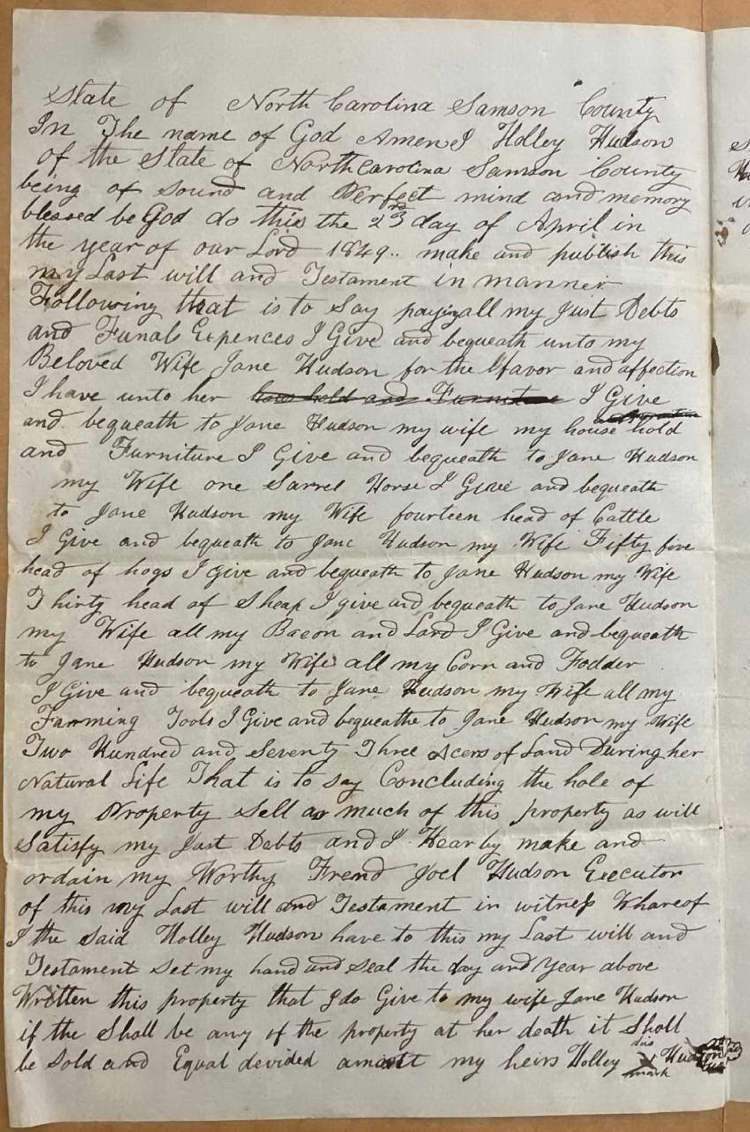 State of North Carolina Samson County
In The name of God Amen I Holley Hudson
of the State of North Carolina Samson County
being of sound and Perfect mind and memory
blessed be God do this the 23rd day of April in
the year of our Lord 1849.. make and publish this
my Last will and Testament in manner
Following that is to Say paying all my Just Debts
and Funals Expences I Give and bequeath unto my
Beloved Wife Jane Hudson for the favor and affection
I have unto her house hold and Furniture I Give
and bequeath to Jane Hudson my wife my house hold
and Furniture I Give and bequeath to Jane Hudson
my Wife one Sarrel Horse I Give and bequeath
to Jane Hudson my Wife fourteen head of Cattle
I Give and bequeath to Jane Hudson my Wife Fifty five
head of hogs I give and bequeath to Jane Hudson my Wife
Thirty head of Sheap I give and bequeath to Jane Hudson
my Wife all my Bacon and Lard I Give and bequeath
to Jane Hudson my Wife all my Corn and Fodder
I Give and bequeath to Jane Hudson my Wife all my
Farming Tools I Give and bequeathe to Jane Hudson my Wife
Two Hundred and Seventy Three Acers of Land During her
Natural Life That is to say Concluding the hole of
my Property Sell as much of this property as will
Satisfy my Just Debts and I Hearby make and
ordain my Worthy Frend Joel Hudson Executor
of this my Last will and Testament in witness Whareof
I the Said Holley Hudson have to this my Last will and
Testament Set my hand and Seal the day and Year above
Written this property that I do Give to my wife Jane Hudson
if the Shall be any of the property at her death it Shall
be Sold and Equal devided amoust my heirs Holley his X mark Hudson